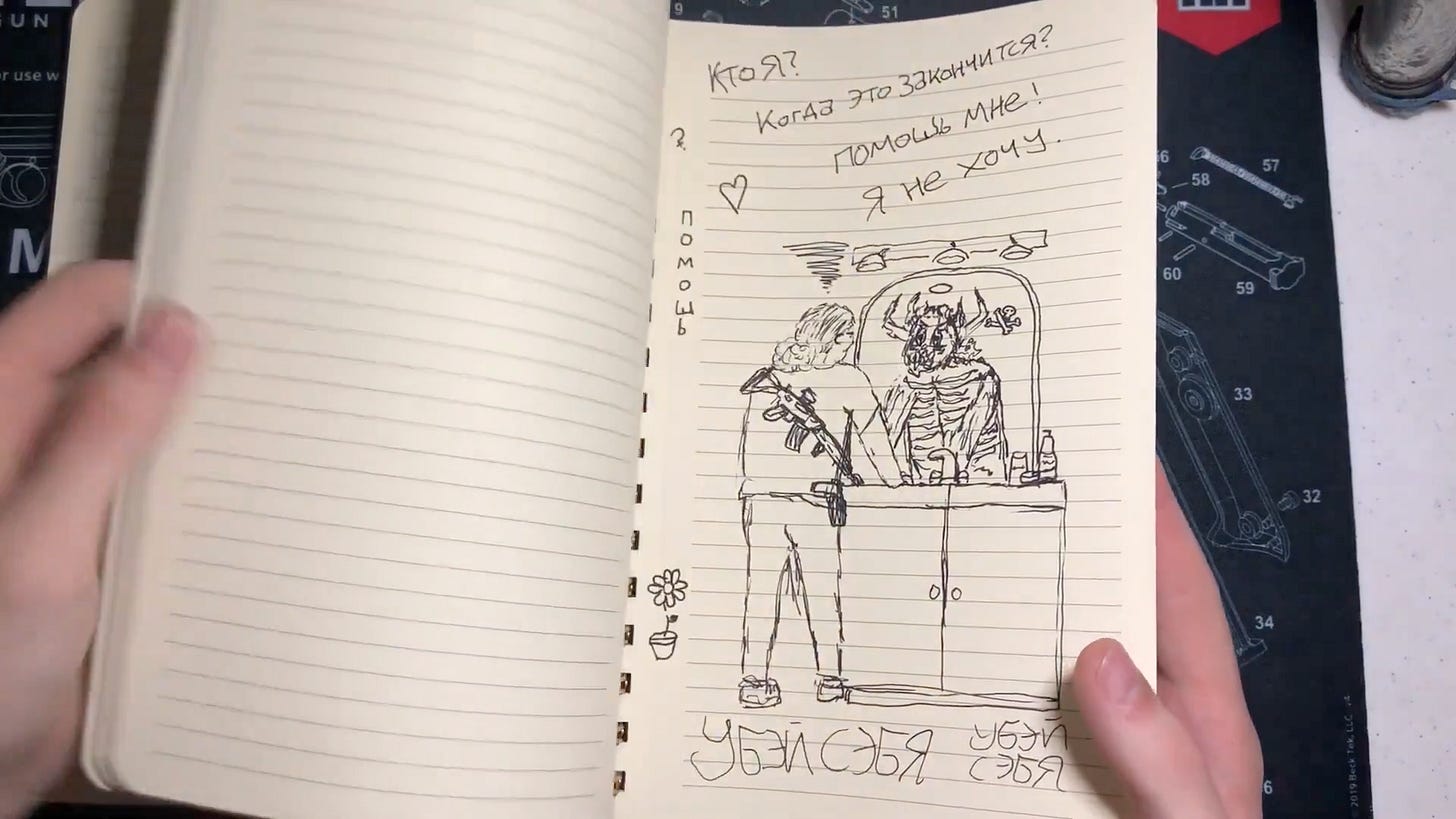 GUN
or use w
M
9
51
Кто я?
Когда это закончится?
помошь мне!
я не хочу.
?
помошь
УБЭЙ СЭБЯ
УБЭЙ
СЭБЯ
56
57
58
60
59
33
32
34
6
2019 Beck Tek, LLC v4